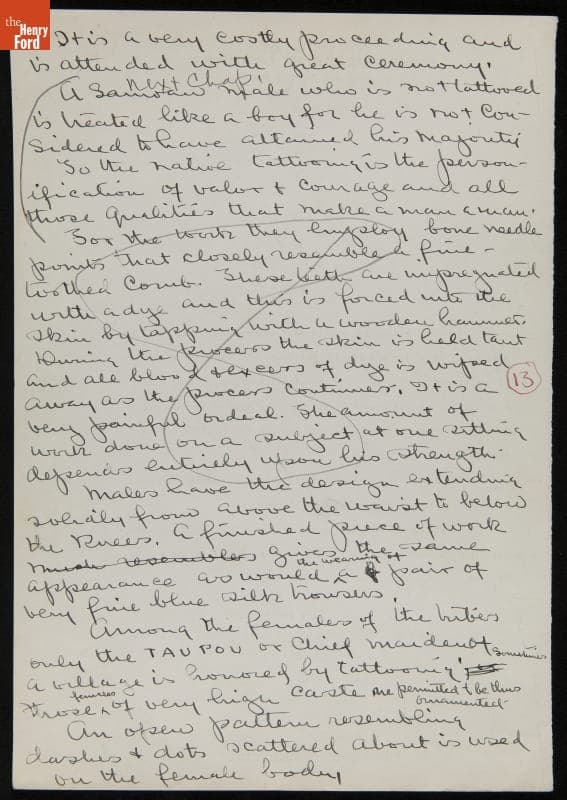 the
Henry
Ford
It is a very costly proceeding and
is attended with great ceremony.
next Chap.
A Samoan male who is not tattooed
is treated like a boy for he is not con-
sidered to have attained his majority
So the native tattooing is the person-
ification of valor & courage and all
those qualities that make a man a man.
For the work they employ bone needle
points that closely resemble a fine-
toothed comb. These teeth are impregnated
with a dye and this is forced into the
skin by tapping with a wooden hammer.
During the process the skin is held taut
and all blood & excess of dye is wiped
away as the process continues. It is a
13
very painful ordeal. The amount of
work done on a subject at one sitting
depends entirely upon his strength.
Males have the design extending
solidly from above the waist to below
the knees. A finished piece of work
much resembles gives the same
appearance as would the wearing of a pair of
very fine blue silk trousers.
Among the females of the tribes
only the TAUPOU or chief maiden of
a village is honored by tattooing. Sometimes
those females of very high caste are permitted to be thus
ornamented.
An open pattern resembling
dashes & dots scattered about is used
on the female body